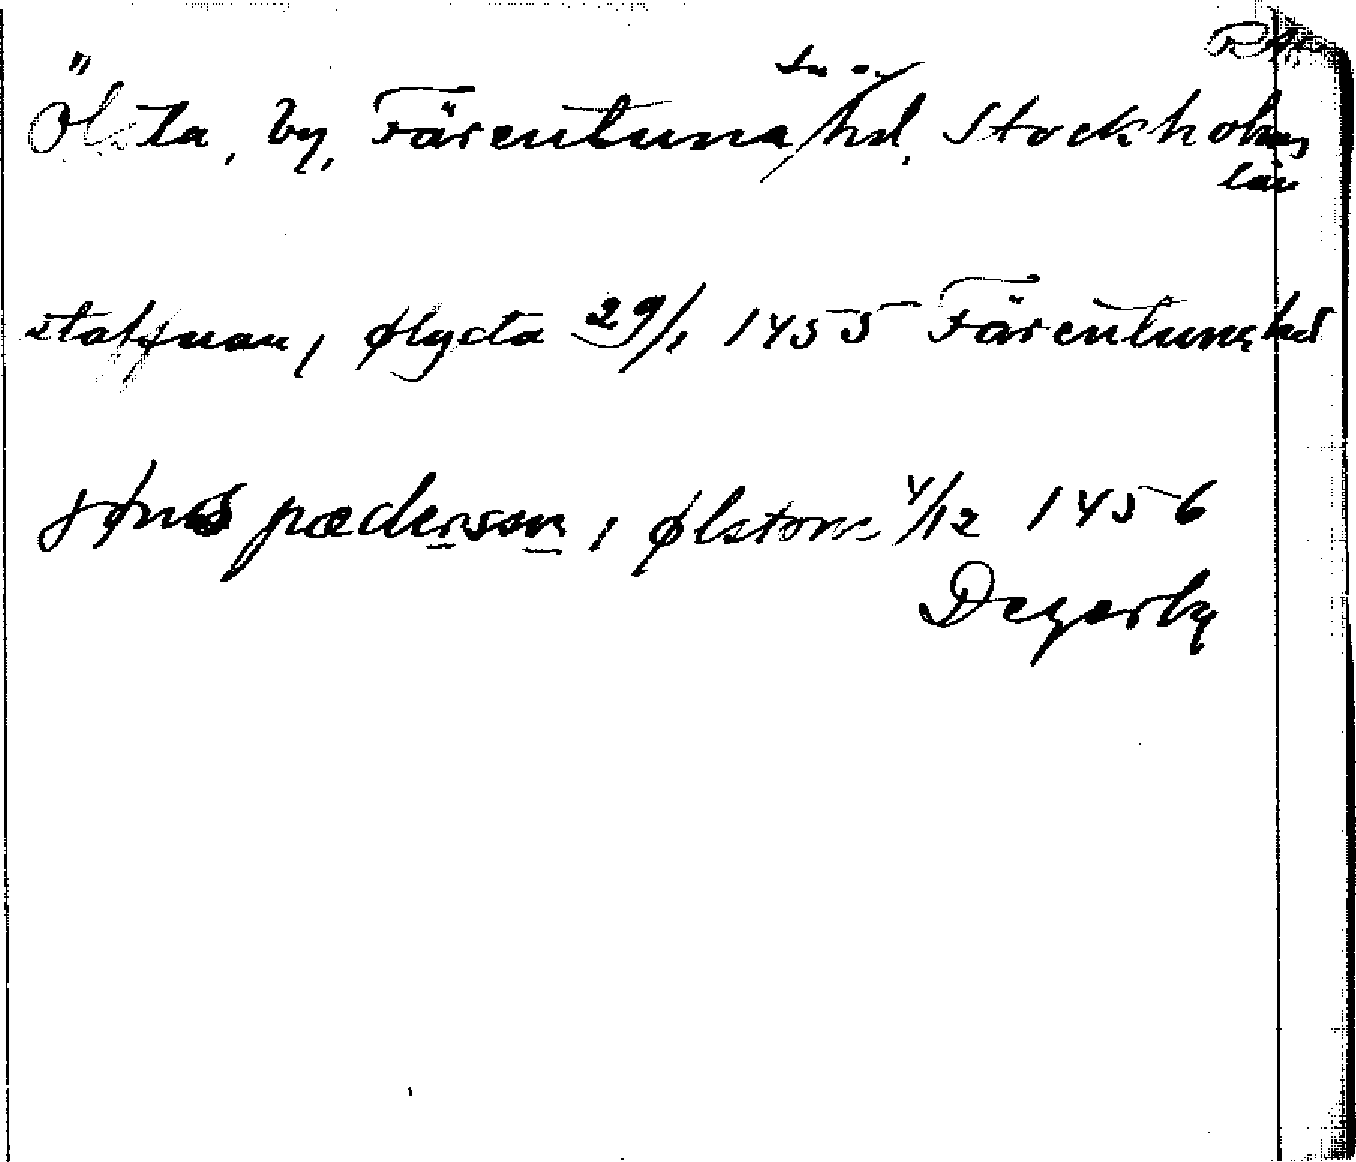 Ölsta, by, Färentuna hd, Stockholms
län
staffnan i ølysta 29/1 1455 Färentuna hd
jønis pædersson i ølstom 4/12 1456
Degerby